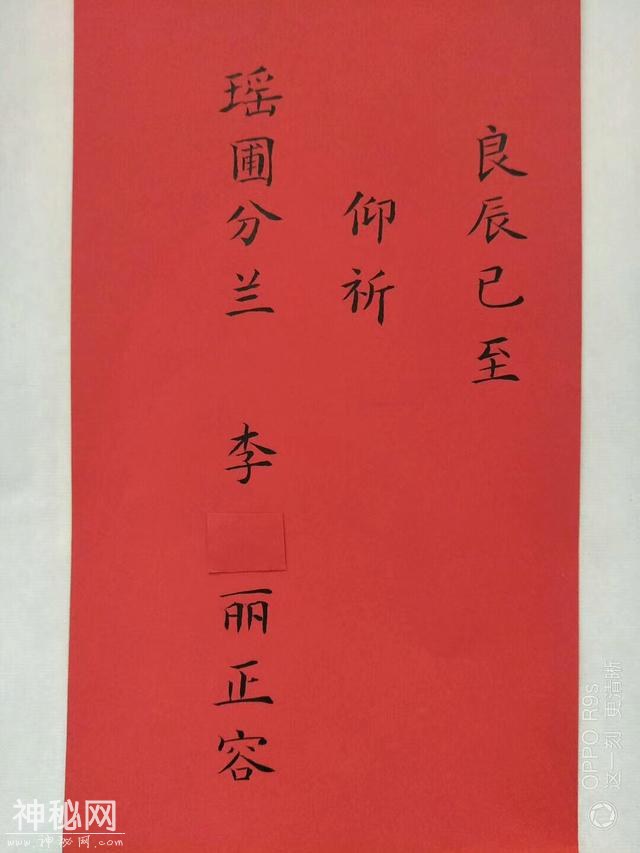 良辰已至
仰祈
瑶圃分兰 李 丽正容
OPPO R9s
这一刻 更清晰
神秘网
www.神秘网.com